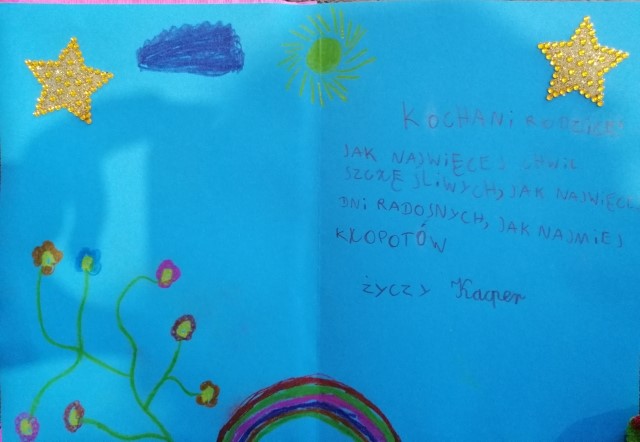 KOCHANI RODZICE!
JAK NAJWIĘCEJ CHWIL
SZCZĘŚLIWYCH, JAK NAJWIĘCEJ
DNI RADOSNYCH, JAK NAJMIEJ
KŁOPOTÓW
życzy Kacper